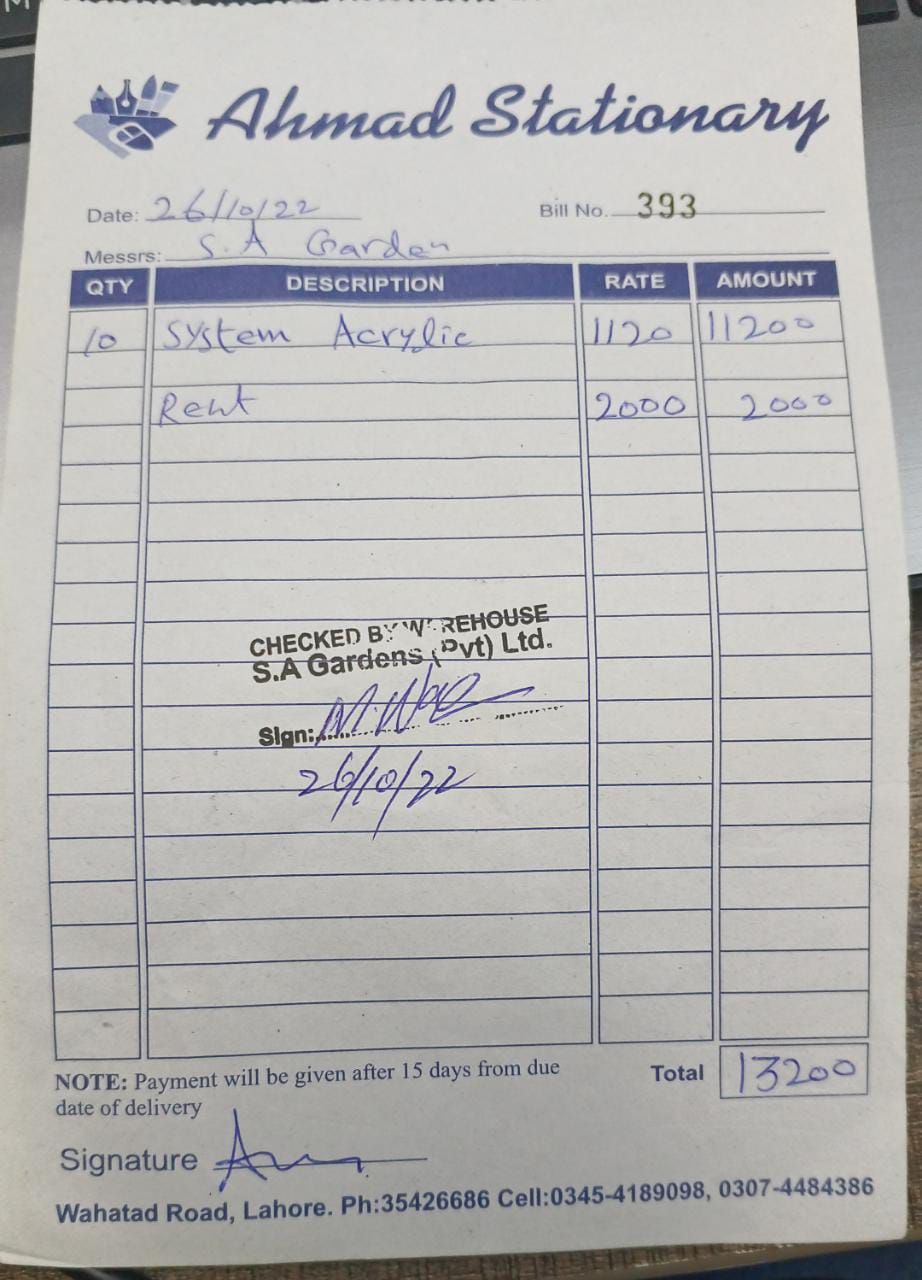 Ahmad Stationary
Date: 26/10/22 Bill No. 393
Messrs: S.A Garden
QTY DESCRIPTION RATE AMOUNT
10 System Acrylic 1120 11200
Rent 2000 2000
CHECKED BY WAREHOUSE
S.A Gardens (Pvt) Ltd.
Sign:
26/10/22
NOTE: Payment will be given after 15 days from due
date of delivery
Total 13200
Signature
Wahatad Road, Lahore. Ph:35426686 Cell:0345-4189098, 0307-4484386